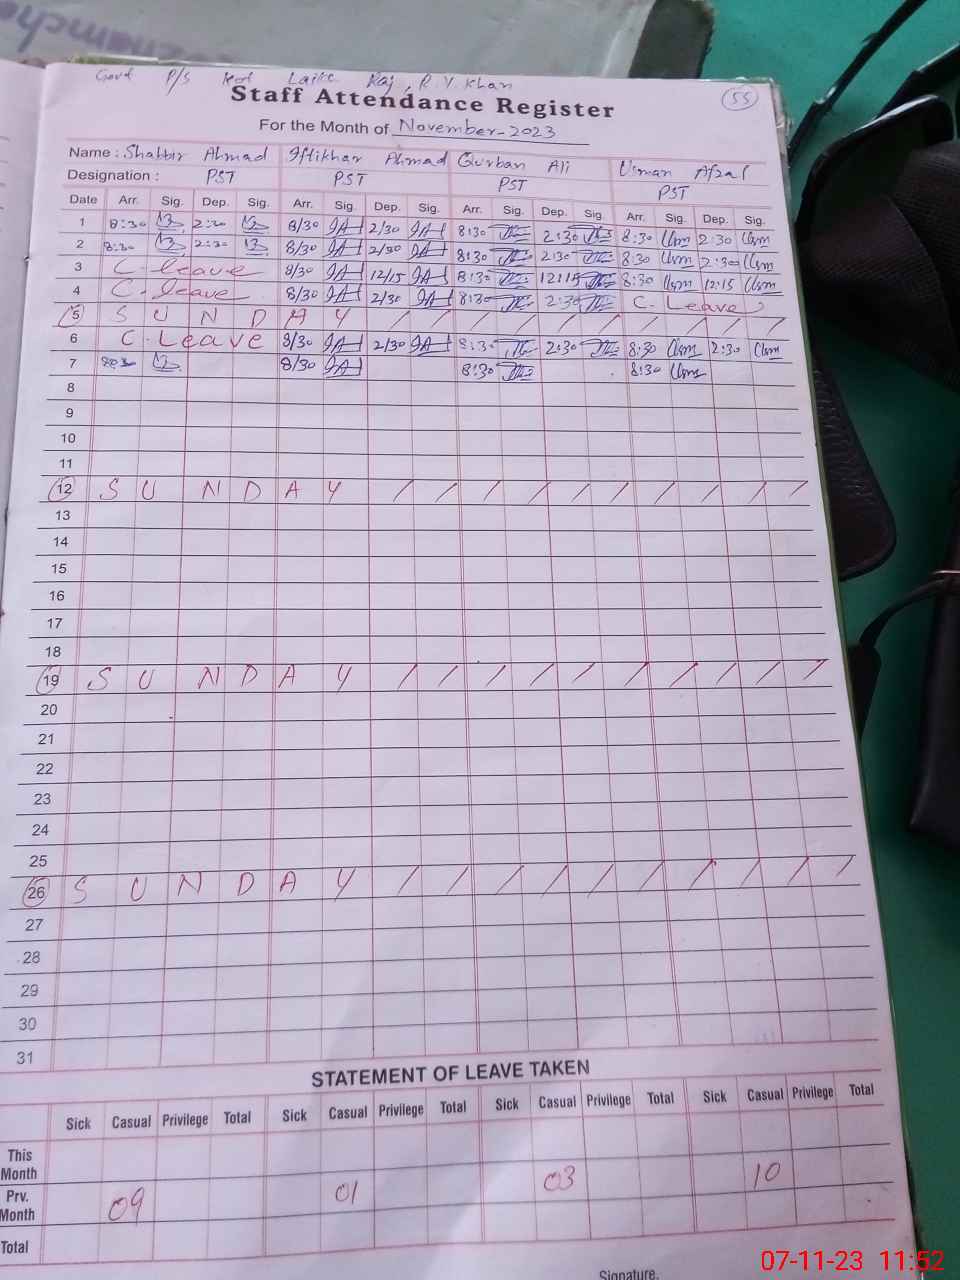 Govt P/S Kot Laiq Raj, R.Y.Khan
Staff Attendance Register
55
For the Month of November-2023
Name : Shabbir Ahmad Iftikhar Ahmad Qurban Ali Usman Afzal
Designation : PST PST PST PST
Date Arr. Sig. Dep. Sig. Arr. Sig. Dep. Sig. Arr. Sig. Dep. Sig. Arr. Sig. Dep. Sig.
1 8:30 2:30 8/30 IA 2/30 IA 8:30 2:30 8:30 Usm 2:30 Usm
2 8:30 2:30 8/30 IA 2/30 IA 8:30 2:30 8:30 Usm 2:30 Usm
3 C-leave 8/30 IA 12/15 IA 8:30 12:15 8:30 Usm 12:15 Usm
4 C-leave 8/30 IA 2/30 IA 8:30 2:30 C-Leave
5 S U N D A Y / / / / / / / / / /
6 C-Leave 8/30 IA 2/30 IA 8:30 2:30 8:30 Usm 2:30 Usm
7 8:30 8/30 IA 8:30 8:30 Usm
8
9
10
11
12 S U N D A Y / / / / / / / / / /
13
14
15
16
17
18
19 S U N D A Y / / / / / / / / / /
20
21
22
23
24
25
26 S U N D A Y / / / / / / / / / /
27
28
29
30
31
STATEMENT OF LEAVE TAKEN
Sick Casual Privilege Total Sick Casual Privilege Total Sick Casual Privilege Total Sick Casual Privilege Total
This Month
Prv. Month 09 01 03 10
Total
Signature.
07-11-23 11:52